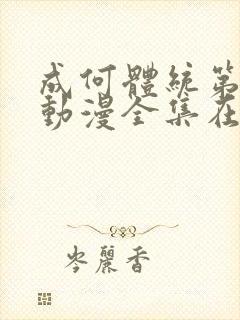 成何體統第
動漫全集在
岑麗香